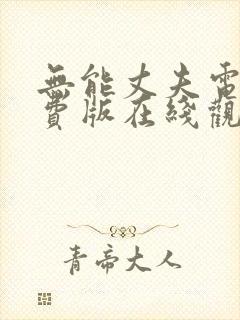 無能丈夫電
費版在綫觀
青帝大人